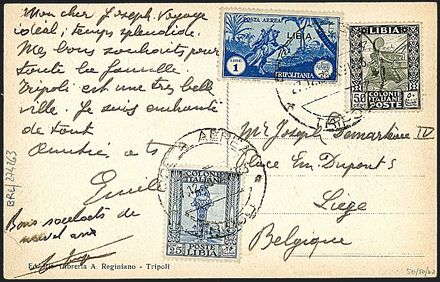 Mon cher Joseph. Voyage
idéal; temps splendide.
Mes bons souhaits pour
toute la famille.
Tripoli est une très belle
ville. Je suis enchanté
de tout
Amitié à
Bons souhaits de
nouvel an
BRE/224163
POSTA AEREA
LIBIA
LIRE
1
TRIPOLITANIA
LIBIA
50
COLONIE ITALIANE
POSTE
AEREA
COLONIE
ITALIANE
POSTE
25 LIBIA
Mr Joseph IV
Place Em. Dupont 5
Liège
Belgique
Libreria A. Reginiano - Tripoli
50/50/02